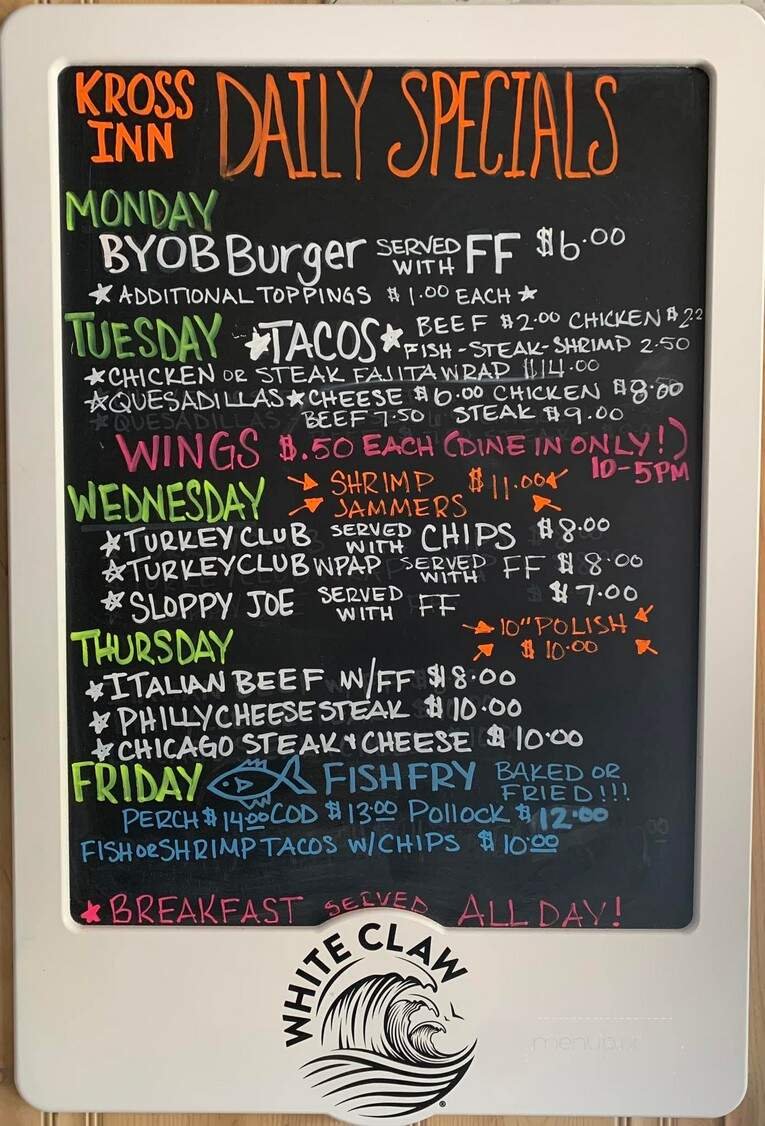 KROSS INN DAILY SPECIALS
MONDAY
BYOB Burger SERVED WITH FF $6.00
★ ADDITIONAL TOPPINGS $1.00 EACH ★
TUESDAY ★TACOS★ BEEF $2.00 CHICKEN $2.2
FISH-STEAK-SHRIMP 2.50
★CHICKEN OR STEAK FAJITA WRAP $14.00
★QUESADILLAS★CHEESE $6.00 CHICKEN $8.00
BEEF 7.50 STEAK $9.00
WINGS $.50 EACH (DINE IN ONLY!)
10-5PM
WEDNESDAY SHRIMP JAMMERS $11.00
★TURKEY CLUB SERVED WITH CHIPS $8.00
★TURKEY CLUB WPAP SERVED WITH FF $8.00
★SLOPPY JOE SERVED WITH FF $7.00
THURSDAY 10" POLISH $10.00
★ITALIAN BEEF W/FF $8.00
★PHILLY CHEESE STEAK $10.00
★CHICAGO STEAK & CHEESE $10.00
FRIDAY FISH FRY BAKED OR FRIED!!!
PERCH $14.00 COD $13.00 Pollock $12.00
FISH OR SHRIMP TACOS W/CHIPS $10.00
★BREAKFAST SERVED ALL DAY!
WHITE CLAW